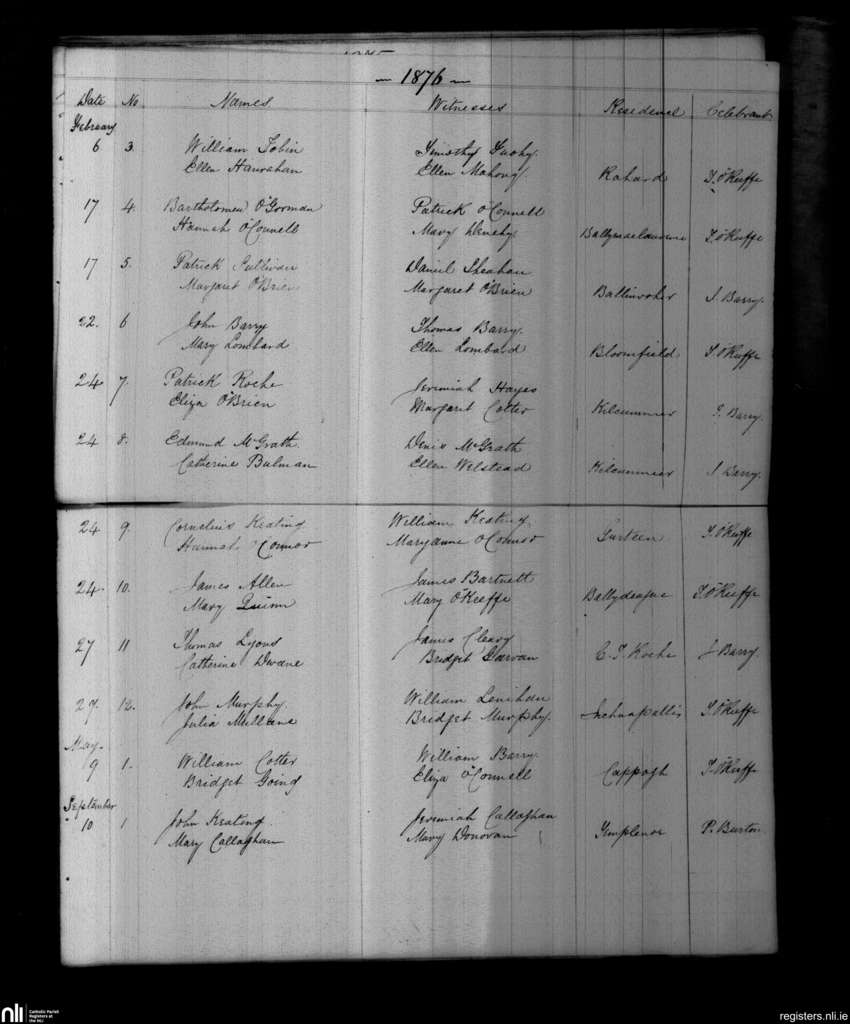 — 1876 —
Date No. Names Witnesses Residence Celebrant
February
6 3. William Tobin Timothy
Ellen Hanrahan Ellen Mahony Rahard T. O'Keeffe
17 4. Bartholomew O'Gorman Patrick O'Connell
Hannah O'Connell Mary Denehy T. O'Keeffe
17 5. Patrick Sullivan Daniel Sheahan
Margaret O'Brien Margaret O'Brien Ballinvoher J. Barry.
22. 6 John Barry Thomas Barry.
Mary Lombard Ellen Lombard Bloomfield T. O'Keeffe
24 7. Patrick Roche Jeremiah Hayes
Eliza O'Brien Margaret Cotter Kilcummer J. Barry.
24 8. Edmund McGrath. Denis McGrath
Catherine Bulman Ellen Welstead Kilcummer J. Barry.
24 9. Cornelius Keating William Keating.
Hannah O'Connor Maryanne O'Connor Gurteen T. O'Keeffe
24. 10. James Allen James Bartnett
Mary Quinn Mary O'Keeffe Ballydeague T. O'Keeffe
27 11 Thomas Lyons James Cleary
Catherine Dwane Bridget Garvan C. T. Roche J Barry.
27. 12. John Murphy. William Lenihan
Julia Mullane Bridget Murphy. T. O'Keeffe
May.
9 1. William Cotter William Barry.
Bridget Going Eliza O'Connell Cappagh T. O'Keeffe
September
10. 1 John Keating. Jeremiah Callaghan
Mary Callaghan Mary Donovan P. Burton
nli
Catholic Parish
Registers at
the NLI
registers.nli.ie